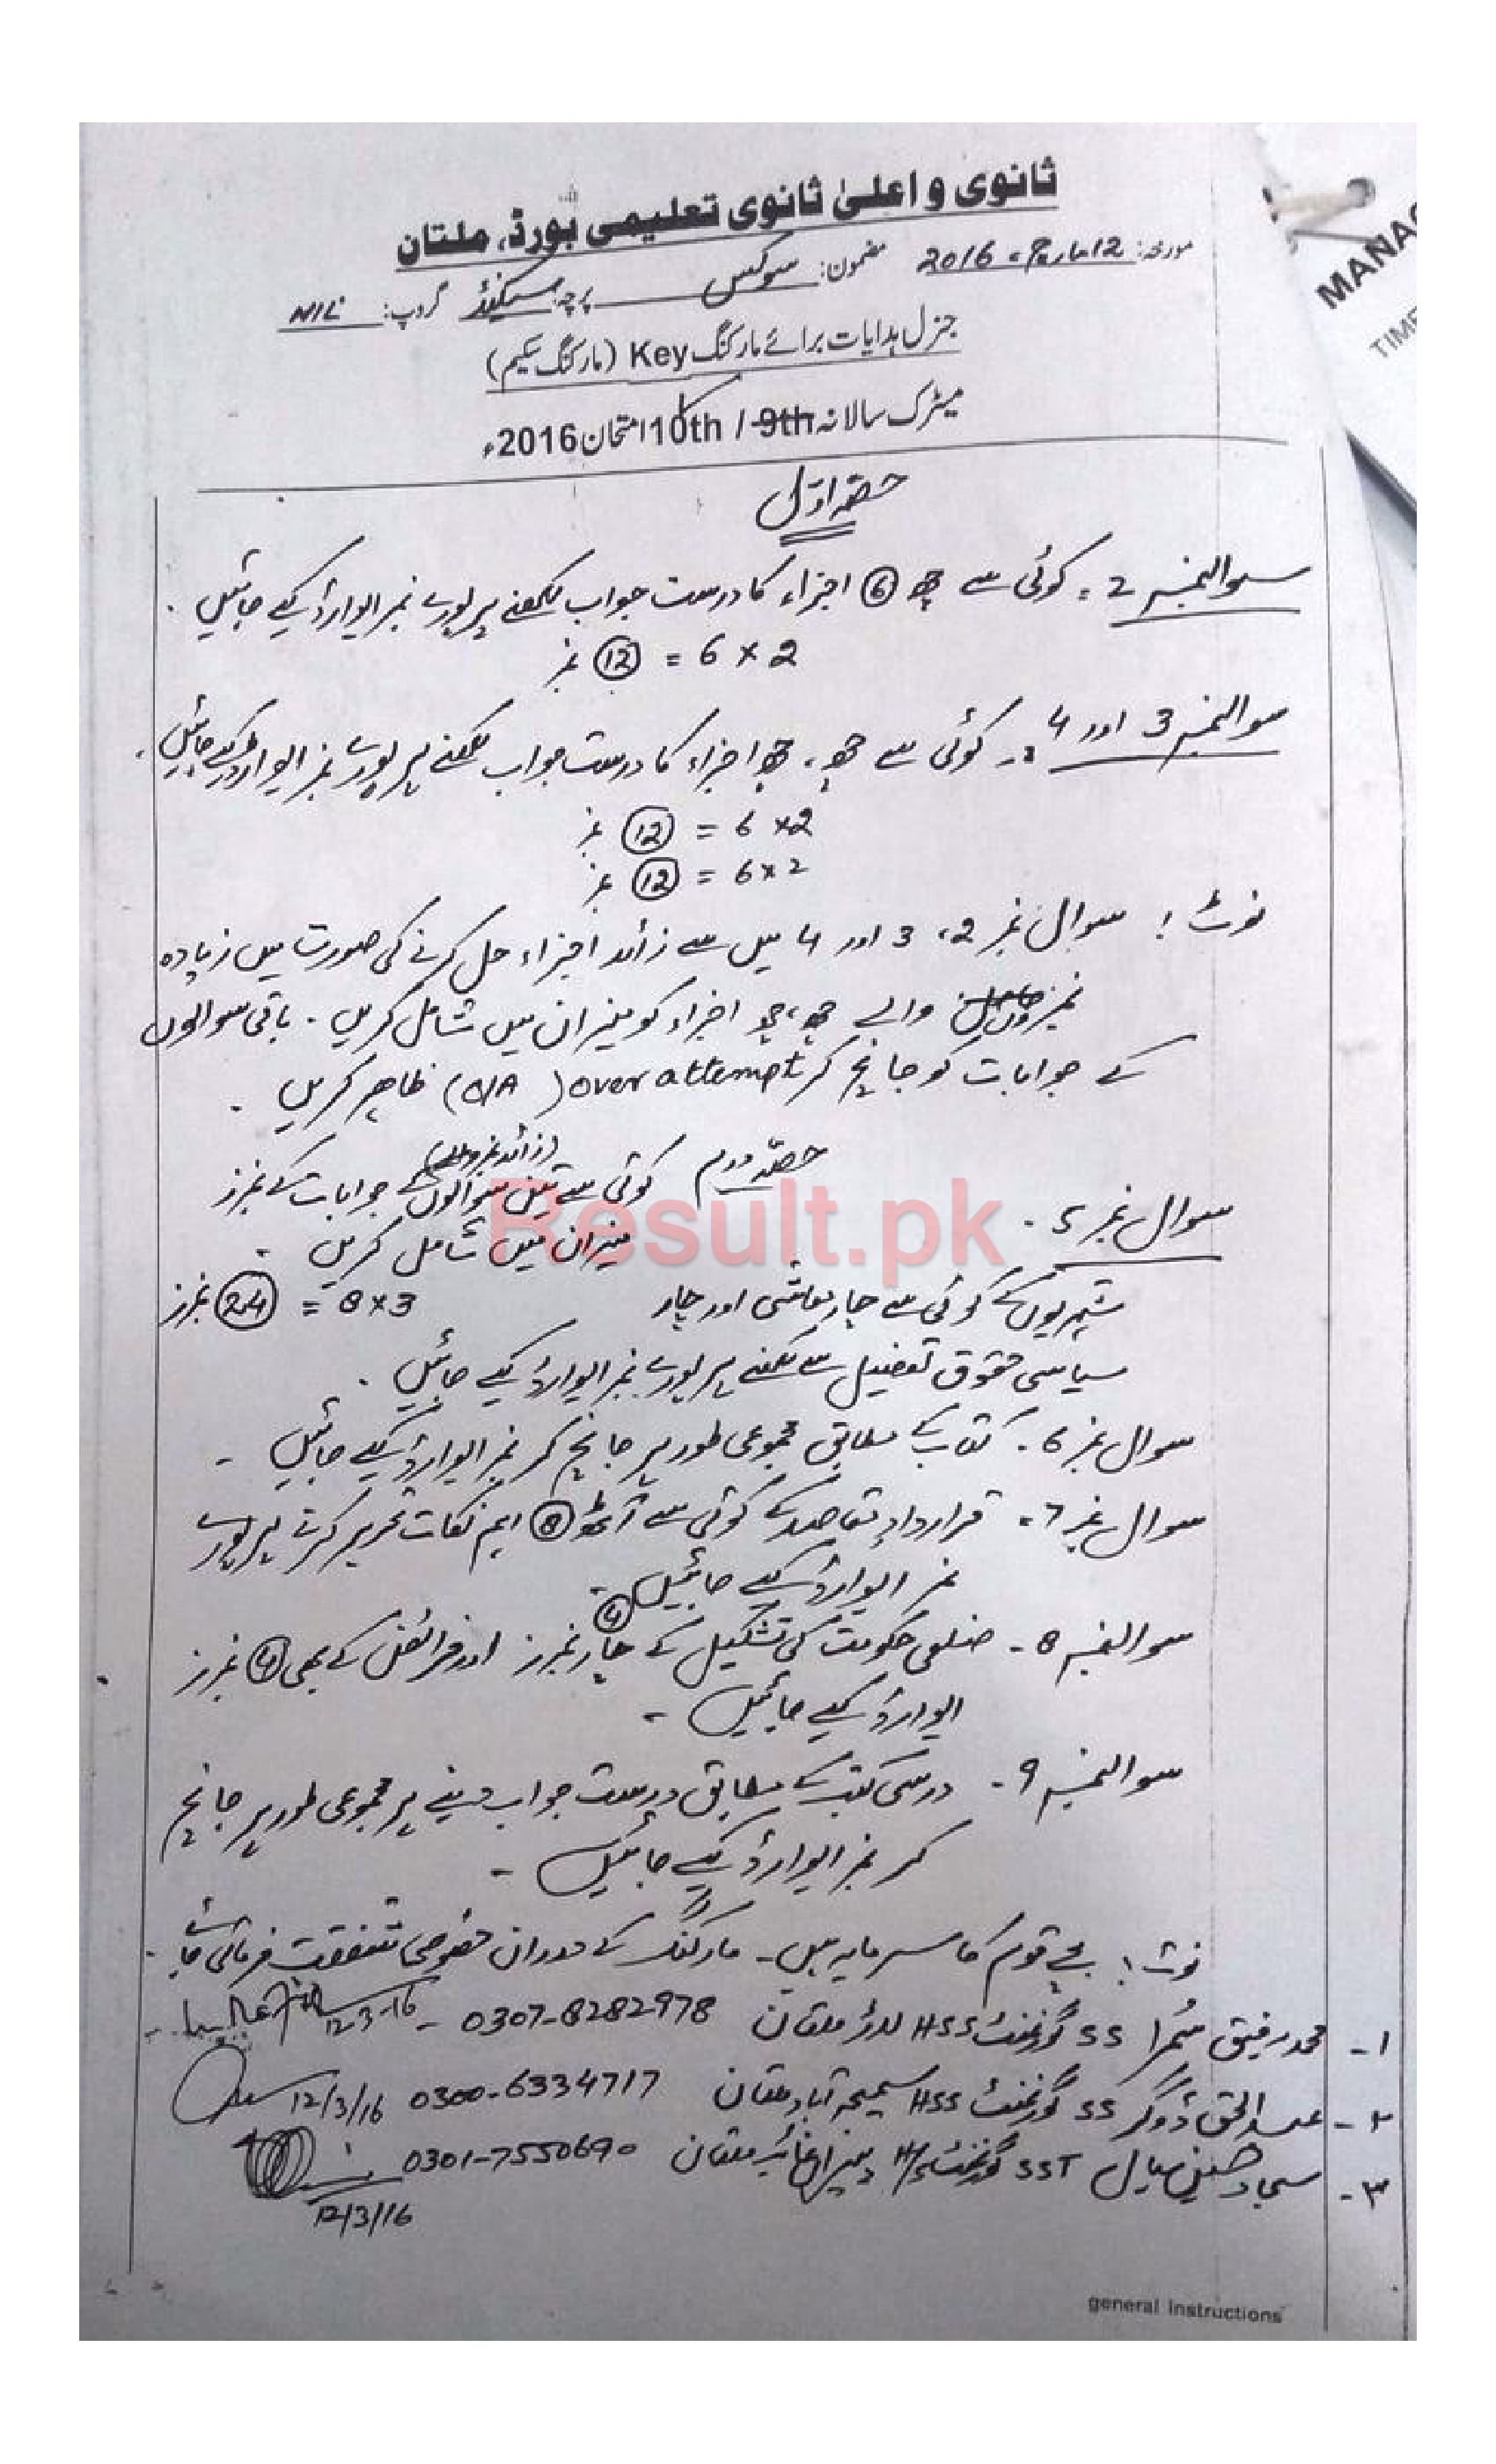 ثانوی و اعلیٰ ثانوی تعلیمی بورڈ، ملتان
مورخہ: 12 مارچ 2016ء مضمون: سوکس پرچہ: سیکنڈ گروپ: Nil
جنرل ہدایات برائے مارکنگ Key (مارکنگ سکیم)
میٹرک سالانہ 9th / 10th امتحان 2016ء
حصہ اوّل
سوالنمبر 2۔ کوئی سے چھ 6 اجزاء کا درست جواب لکھنے پر پورے نمبر ایوارڈ کیے جائیں۔
6 × 2 = 12 نمبر
سوالنمبر 3 اور 4:۔ کوئی سے چھ، چھ اجزاء کا درست جواب لکھنے پر پورے نمبر ایوارڈ کیے جائیں۔
6 × 2 = 12 نمبر
6 × 2 = 12 نمبر
نوٹ! سوال نمبر 2، 3 اور 4 میں سے زائد اجزاء حل کرنے کی صورت میں زیادہ
نمبروں والے چھ، چھ اجزاء کو میزان میں شامل کریں۔ باقی سوالوں
کے جوابات کو جانچ کر over attempt (O/A) ظاہر کریں۔
حصہ دوم
سوال نمبر 5۔ کوئی سے تین سوالوں (زائد نمبر والے) کے جوابات کے نمبرز
میزان میں شامل کریں۔
شہریوں کے کوئی سے چار معاشی اور چار 8×3 = 24 نمبرز
سیاسی حقوق تفصیل سے لکھنے پر پورے نمبر ایوارڈ کیے جائیں۔
سوال نمبر 6۔ کتاب کے مطابق مجموعی طور پر جانچ کر نمبر ایوارڈ کیے جائیں۔
سوال نمبر 7۔ قراردادِ مقاصد کے کوئی سے آٹھ 8 اہم نکات تحریر کرنے پر پورے
نمبر ایوارڈ کیے جائیں۔
سوالنمبر 8۔ ضلعی حکومت کی تشکیل کے چار 4 نمبرز اور فرائض کے بھی 4 نمبرز
ایوارڈ کیے جائیں۔
سوالنمبر 9۔ درسی کتب کے مطابق درست جواب دینے پر مجموعی طور پر جانچ
کر نمبر ایوارڈ کیے جائیں۔
نوٹ! بچے قوم کا سرمایہ ہیں۔ مارکنگ کے دوران خصوصی شفقت فرمائی جائے۔
۱۔ محمد رفیق SS گورنمنٹ HSS ملتان 0307-8282978 12-3-16
۲۔ عبدالحق ڈوگر SS گورنمنٹ HSS سمیجہ آباد ملتان 0300-6334717 12/3/16
۳۔ سجاد حسین سیال SST گورنمنٹ ملتان 0301-7550690
12/3/16
general instructions
MANAG
TIME
Result.pk